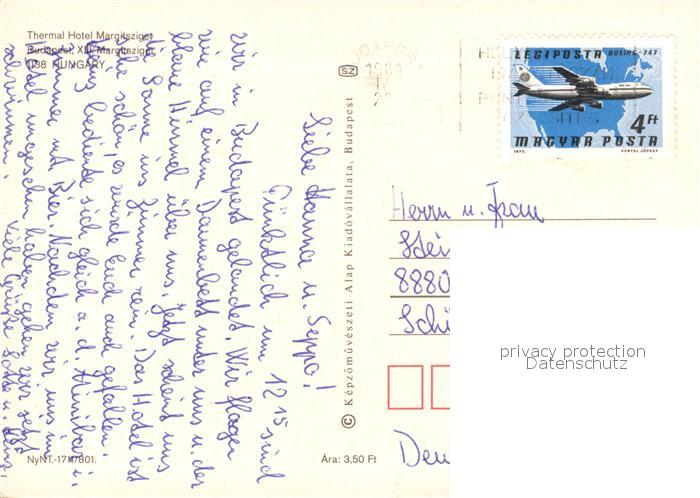 Thermal Hotel Margitsziget
Budapest, XIII. Margitsziget
1138 HUNGARY
LÉGIPOSTA BOEING-747
4 Ft
MAGYAR POSTA
1977. VERTEL JÓZSEF
SZ
1981
IV
Liebe Hanna u. Seppo!
Pünktlich um 12 15 sind
wir in Budapest gelandet. Wir flogen
wie auf einem Daunenbett unter uns u. der
blaue Himmel über uns. Jetzt scheint uns
die Sonne ins Zimmer rein. Das Hotel ist
sehr schön, es würde Euch auch gefallen.
bediente sich gleich a. d. Minibar i.
Zimmer mit Bier. Nachdem wir uns im
Hotel umgesehen haben gehen wir jetzt
schwimmen. Viele Grüße
© Képzőművészeti Alap Kiadóvállalata, Budapest
Herrn u. Frau
Stei
8880
Schi
privacy protection
Datenschutz
Deu
NyNT.-1717801.
Ára: 3,50 Ft